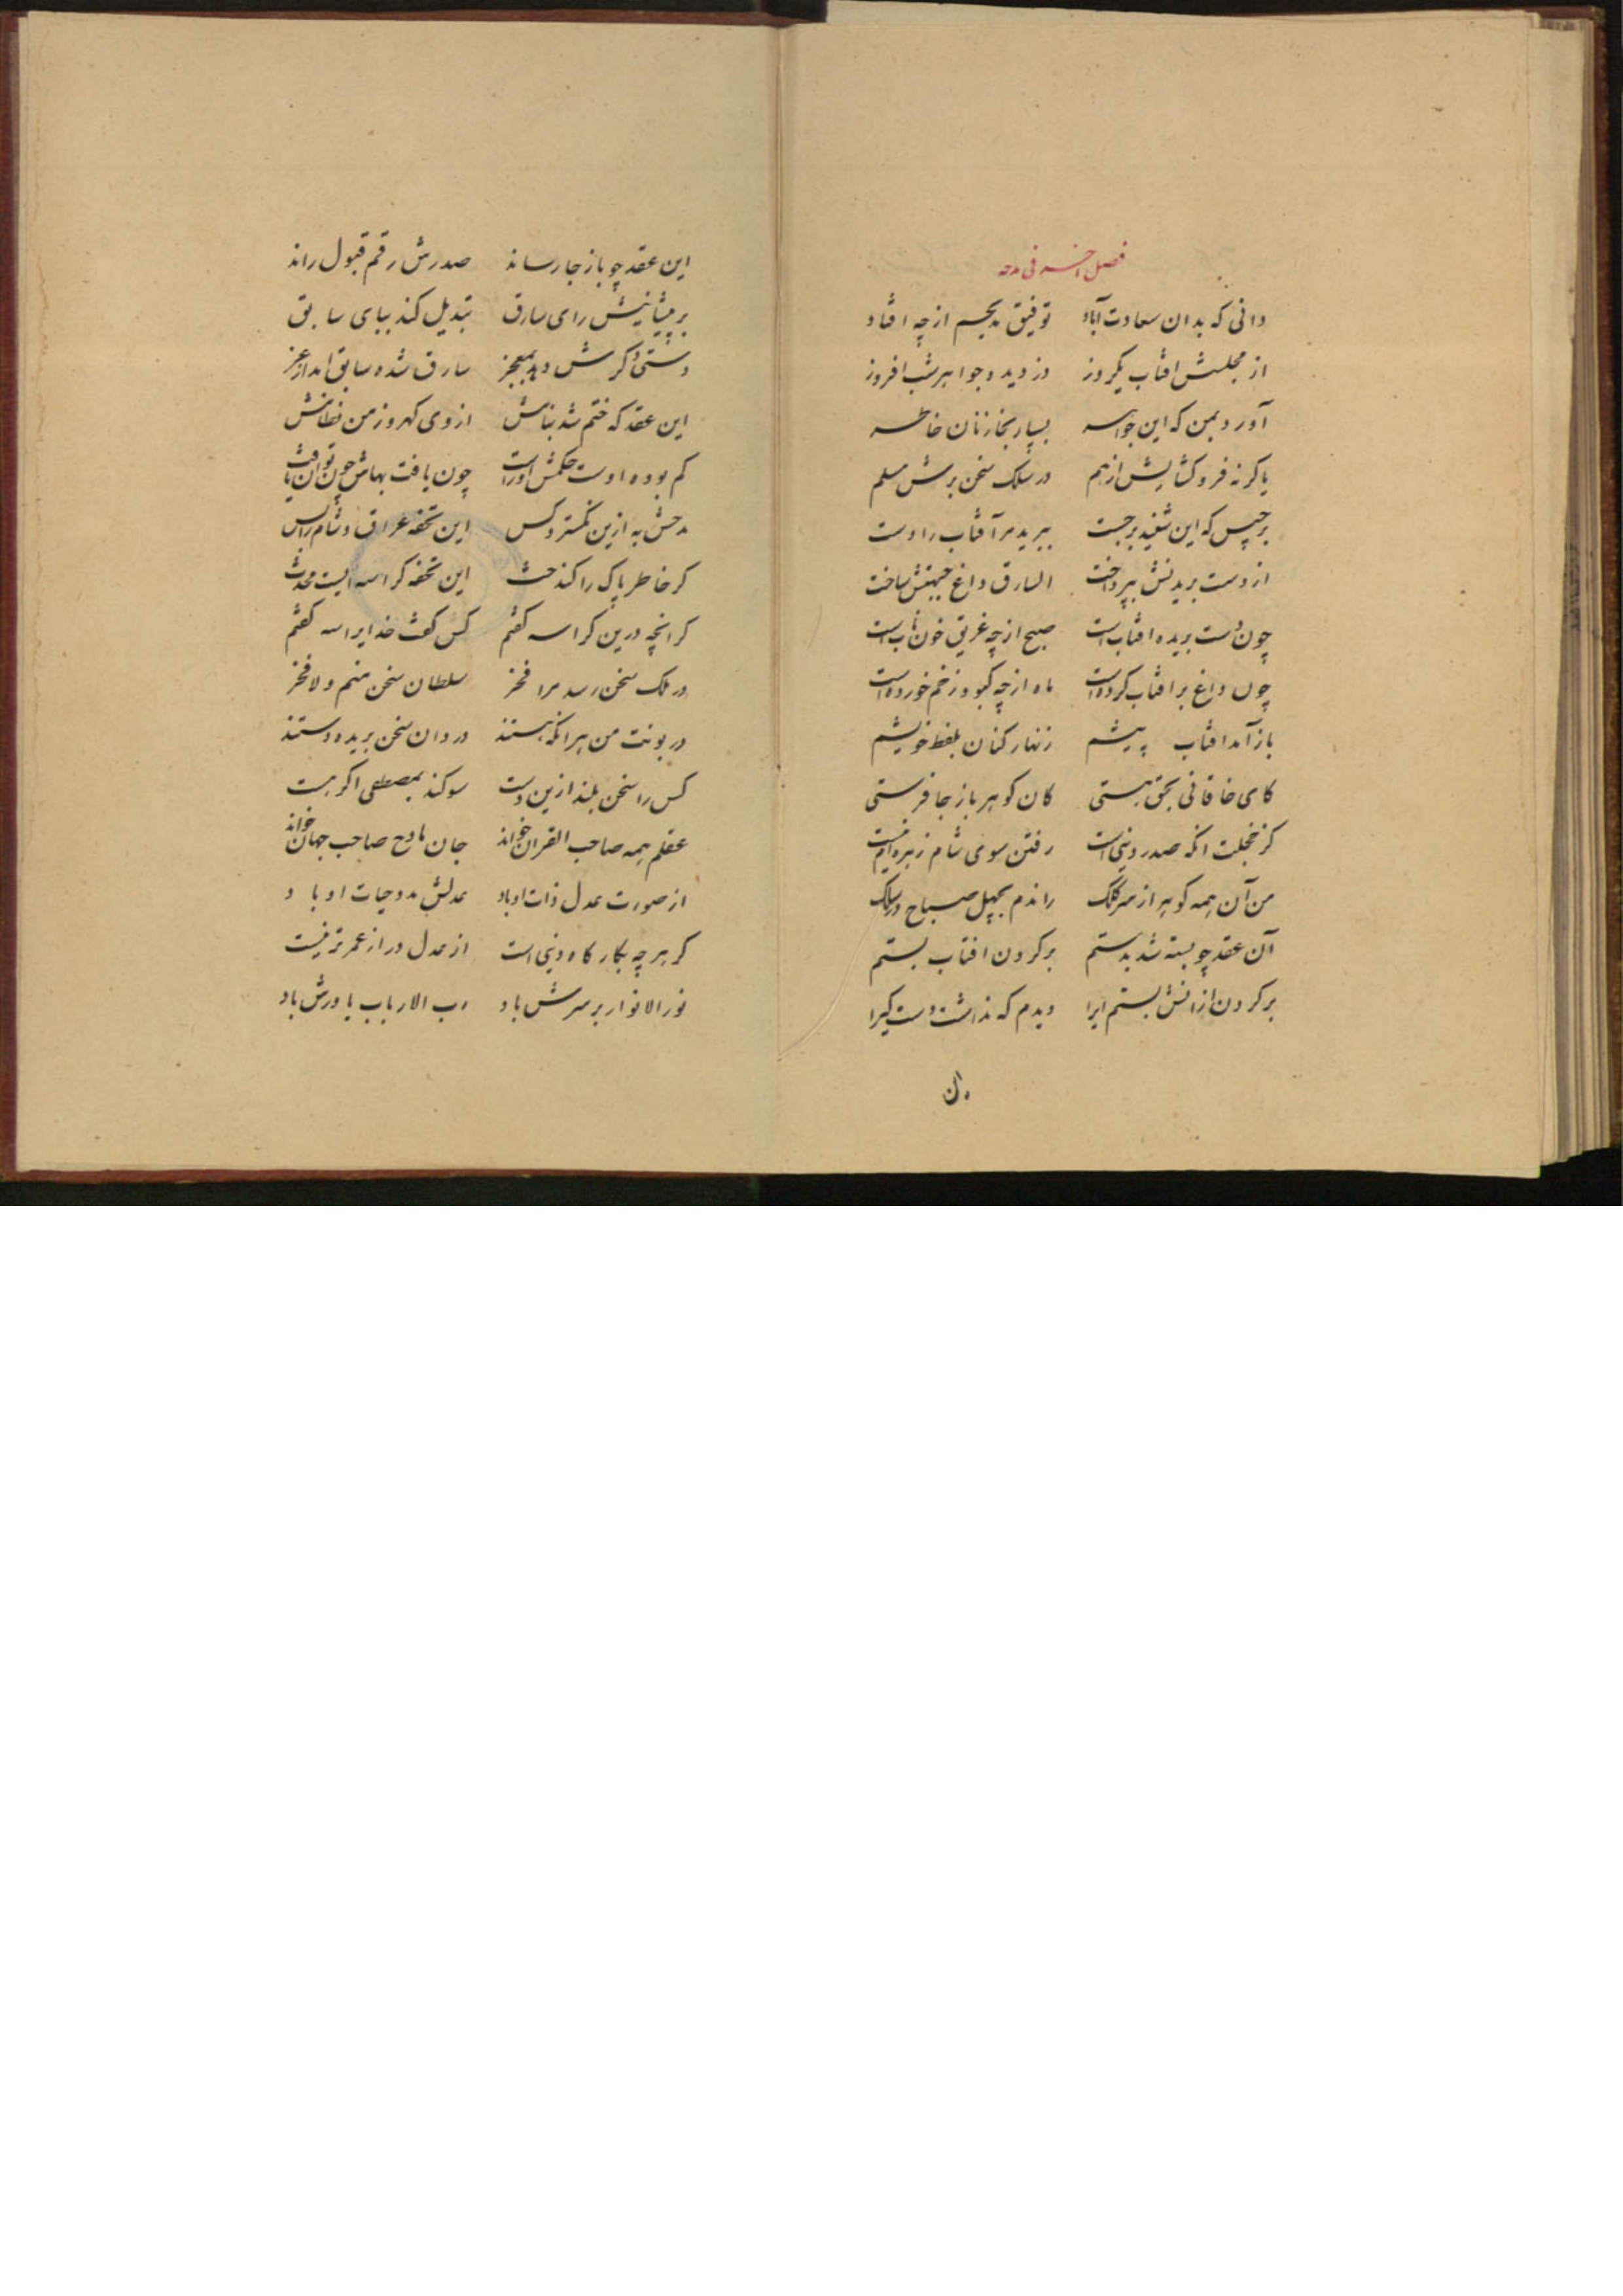 فصل اخر فی مدحه
دانی که بدان سعادت آباد توفیق مدیحیم ازچه افتاد
از مجلسش افتاب یکروز دزدید جواهر شب افروز
آورد بمن که این جواهر بسپار بخازنان خاطر
یا کرنه فروکشایش از هم در سلک سخن برش مسلم
برجیس که این شنید برجست ببرید مر آفتاب را دست
از دست بریدنش بپرداخت السارق داغ جبهتش ساخت
چون دست بریده افتابست صبح ازچه غریق خون نابست
چون داغ بر افتاب کرده است ماه ازچه کبود زخم خورده است
باز آمد افتاب پیشم زنهار کنان بلفظ خویشم
کای خاقانی بحق هستی کان کوهر باز جا فرستی
کز خجلت انکه صدر دینی است رفتن سوی شام زهره ام نیست
من آن همه کوهر از سر کلک راندم بچهل صباح در سلک
آن عقد چو بسته شد بدستم بر کردن افتاب بستم
بر کردن ازانش بستم ایرا دیدم که نداشت دست کیرا
این عقد چو باز جا رساند صدرش رقم قبول راند
بر پیشانیش رای سارق تبدیل کند ببای سابق
دستی دکرش دهد بمعجز سارق شده سابق اید از عجز
این عقد که ختم شد بنامش از وی کهر وز من نظامش
کم بوده اوست حکمش اوراست چون یافت بهاش چون توان یافت
مدحش به ازین نکسترد کس این تحفه عراق و شام را بس
کر خاطر پاک را کند حث این تحفه کراسه ایست محدث
کرانچه درین کراسه کفتم کس کفت خدایرا سه کفتم
در ملک سخن رسد مرا فخر سلطان سخن منم ولا فخر
در نوبت من هر انکه هستند دزدان سخن بریده دستند
کس را سخن بلند ازین دست سوکند بمصطفی اکر هست
عقلم همه صاحب القران خواند جان مادح صاحب جهان خواند
از صورت عدل ذات او باد عدلش مدد حیات او باد
کر هر چه بکار کاه دینی است از عدل دراز عمرتر نیست
نور الانوار بر سرش باد رب الارباب یاورش باد